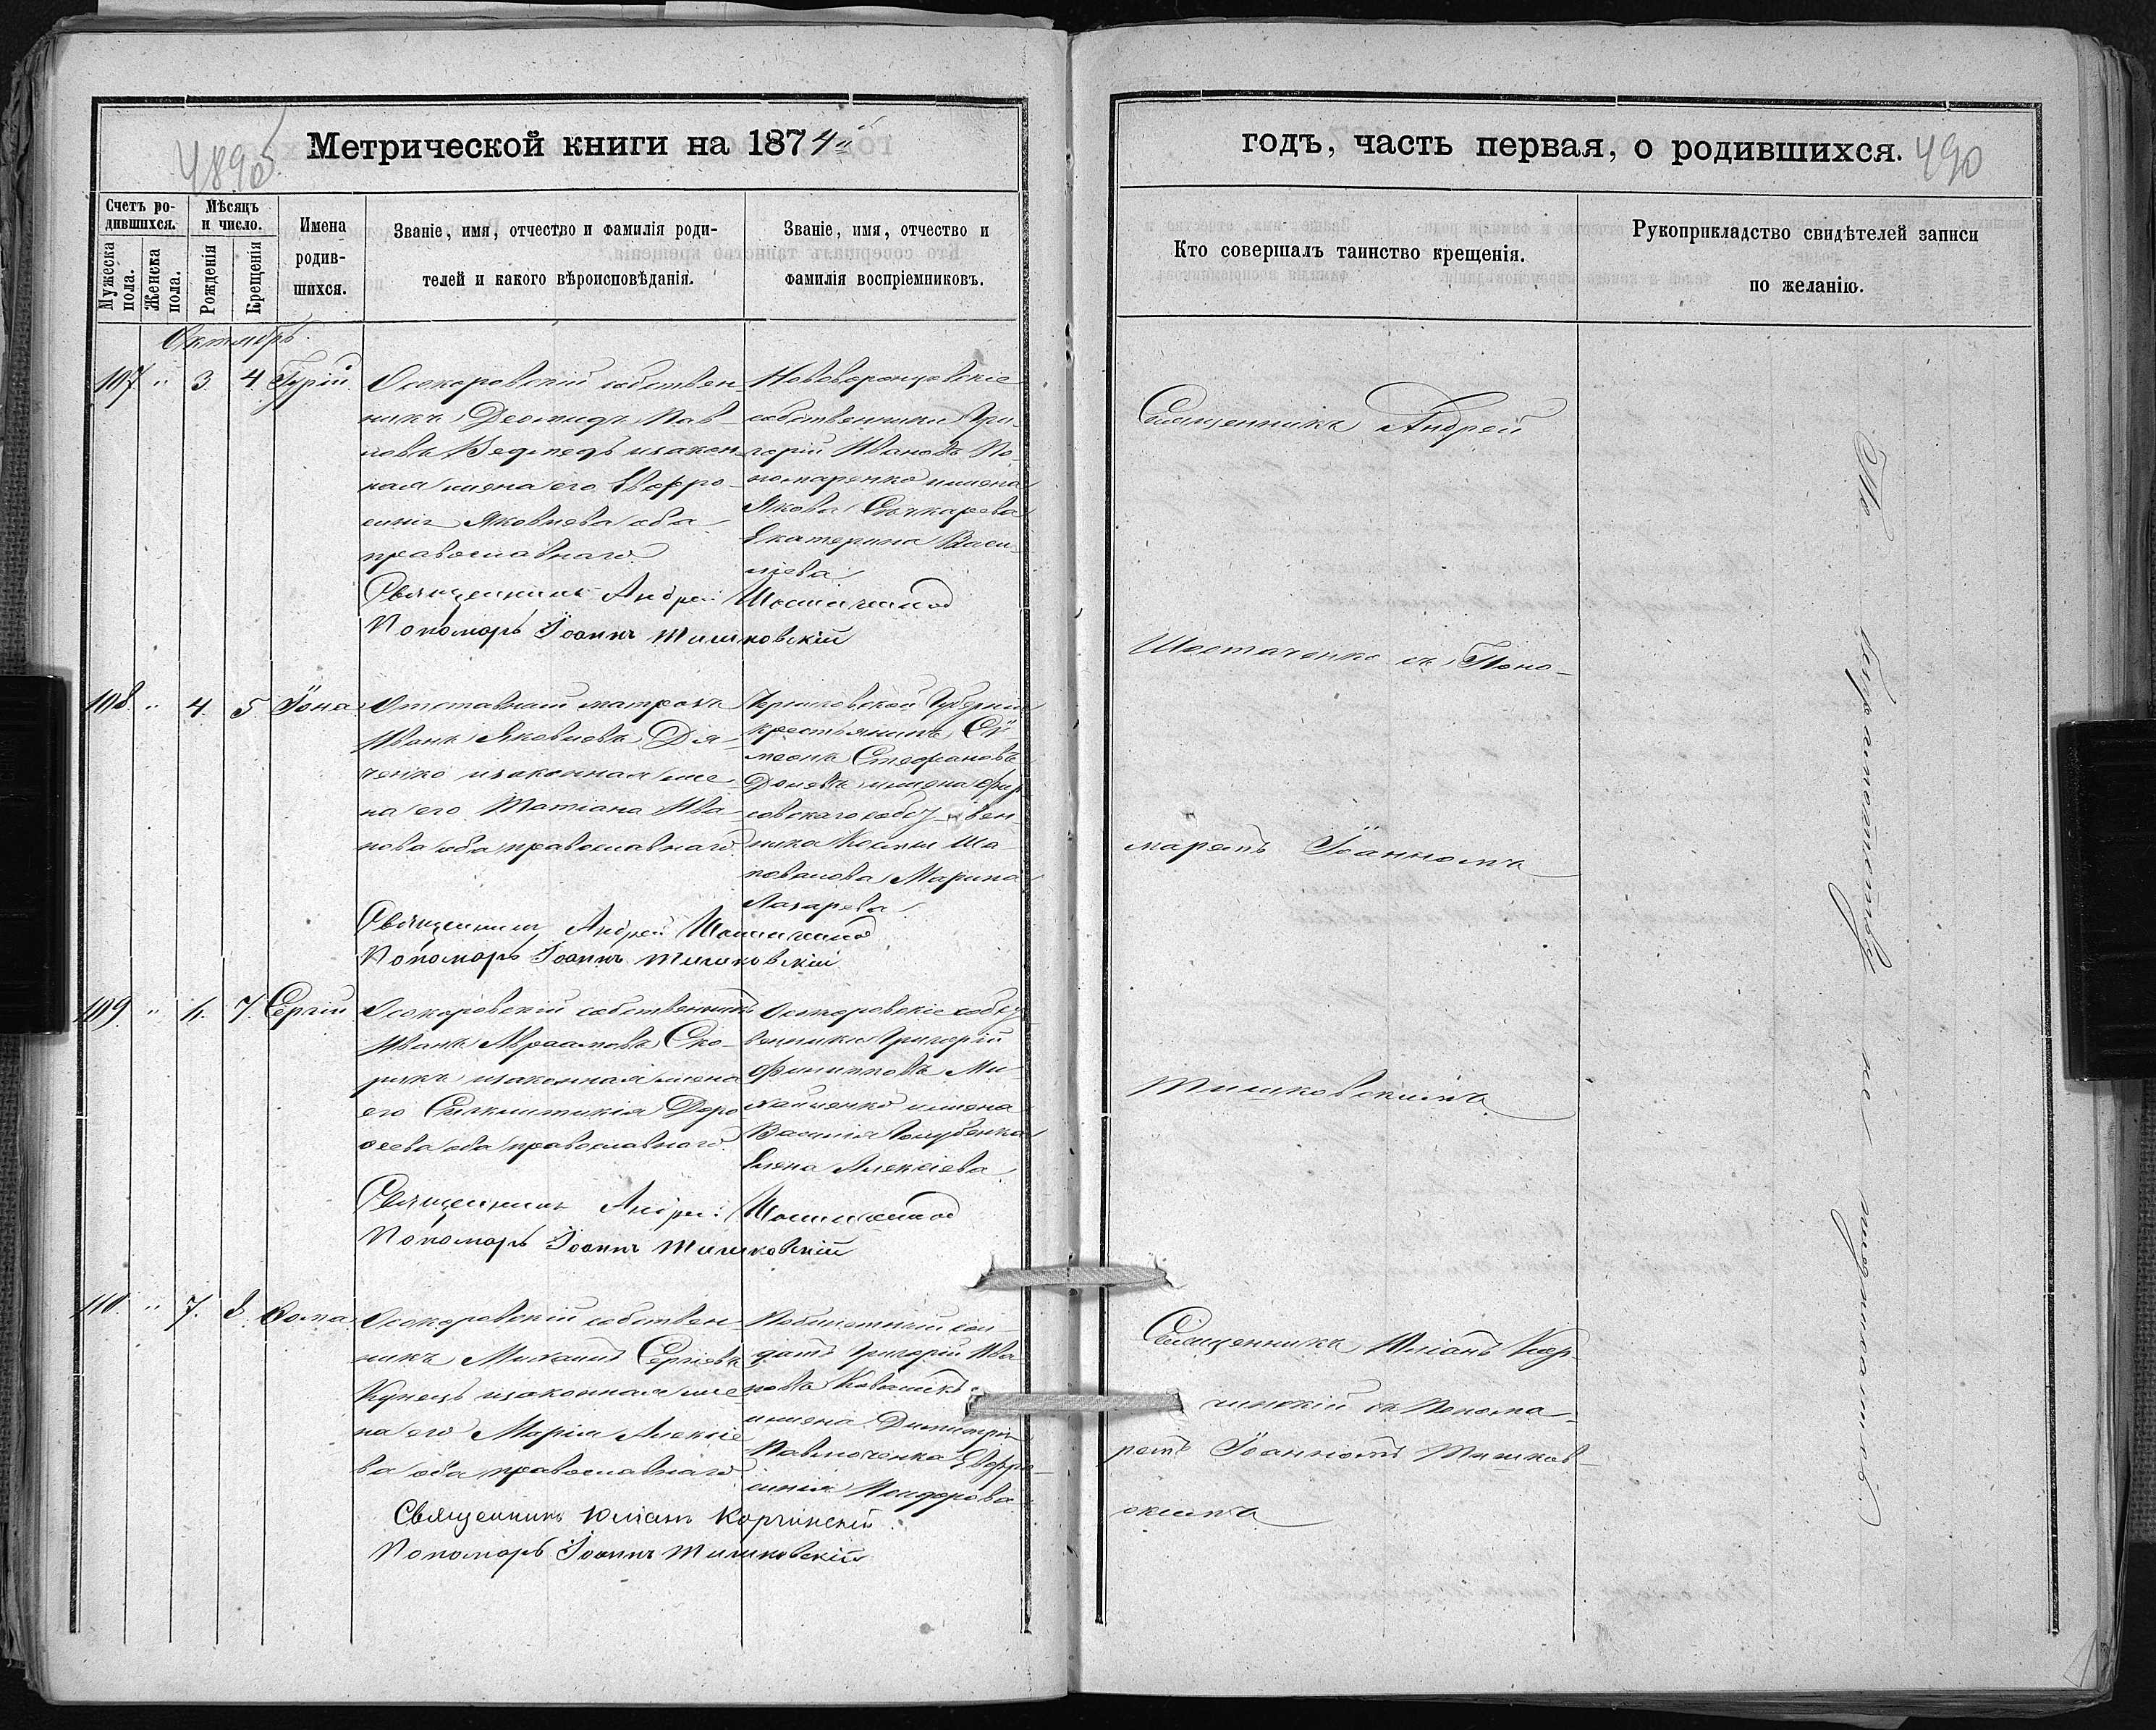 Метрической книги на 1874й
489об
Счетъ ро-
дившихся.
Мужеска
пола.
Женска
пола.
Мѣсяцъ
и число.
Рожденія
Крещенія
Имена
родив-
шихся.
Званіе, имя, отчество и фамилія роди-
телей и какого вѣроисповѣданія.
Званіе, имя, отчество и
фамилія воспріемниковъ.
Октябрь.
107 " 3. 4. Гурій
Осокоровскій собствен-
никъ Деомидъ Пав-
ловъ Ведмедь и закон-
ная жена его Евфро-
синія Яковлева оба
православнаго
Нововоронцовскіе
собственники Гри-
горій Ивановъ По-
номаренко и жена
Якова Сочкарева
Екатерина Васи-
ліева
Священникъ Андрей Шостаченко
Пономарь Іоаннъ Тишковскій
108. " 4. 5. Іона
Отставный матрозъ
Иванъ Яковлевъ Дя-
ченко и законная же-
на его Татіана Ива-
нова оба православнаго
Черниговской Губерніи
крестьянинъ Си-
меонъ Стефановъ
и жена
собственника
Марина
Лазарева
Священникъ Андрей Шостаченко
Пономарь Іоаннъ Тишковскій
109. " 6. 7. Сергій
Осокоровскій собственникъ
Иванъ Авраамовъ Ско-
рикъ и законная жена
его Синклитикія Доро-
ѳеева оба православнаго
Осокоровскіе собст-
венники Григорій
Филипповъ Ми-
хайленко и жена
Василія Голубенка
Елена Алексіева
Священникъ Андрей Шостаченко
Пономарь Іоаннъ Тишковскій
110. " 7. 8. Ѳома
Осокоровскій собствен-
никъ Михаилъ Сергіевъ
Купецъ и законная же-
на его Марія Алексіе-
ва оба православнаго
сол-
датъ Григорій Ива-
новъ
и жена Димитрія
Павлюченка Евфро-
синія
Священникъ Юліанъ Корчинскій
Пономарь Іоаннъ Тишковскій
годъ, часть первая, о родившихся.
490
Кто совершалъ таинство крещенія.
Рукоприкладство свидѣтелей записи
по желанію.
Священникъ Андрей
Шостаченко съ Поно-
маремъ Іоанномъ
Тишковскимъ
Священникъ Юліанъ Кор-
чинскій съ Понома-
ремъ Іоанномъ Тишков-
скимъ